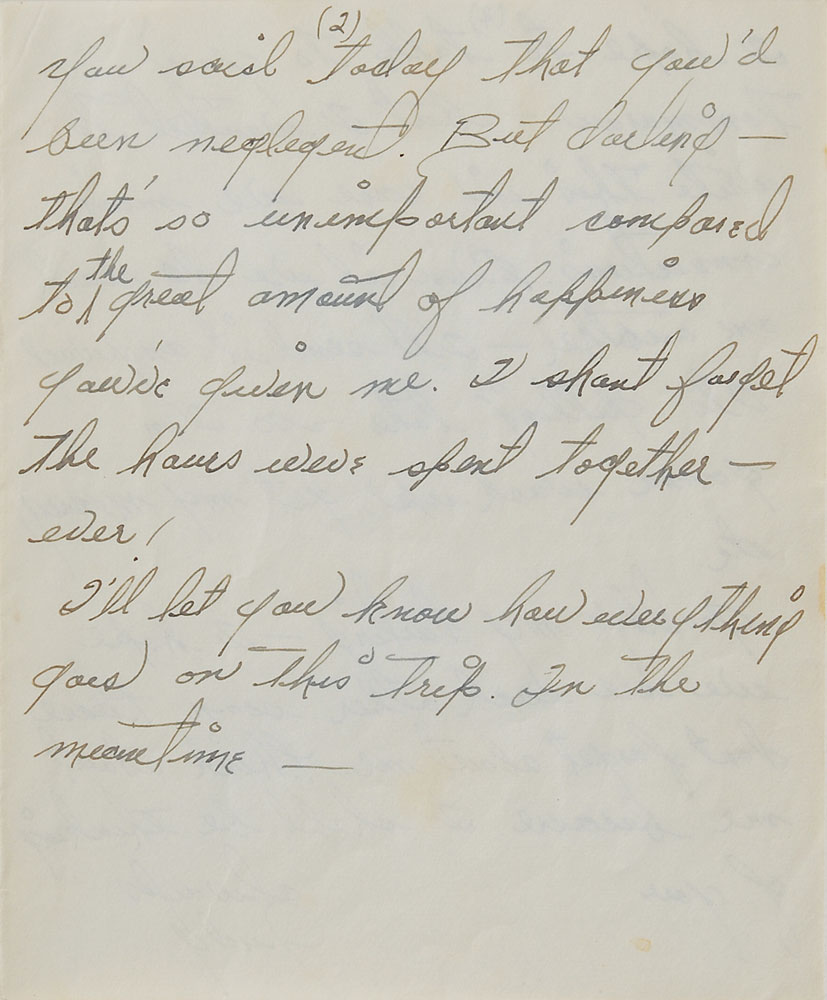 (2)
You said today that you'd
been neglegent. But darling —
that's so unimportant compared
to the great amount of happiness
you've given me. I shant forget
the hours weve spent together —
ever!
I'll let you know how everything
goes on this trip. In the
meantime —